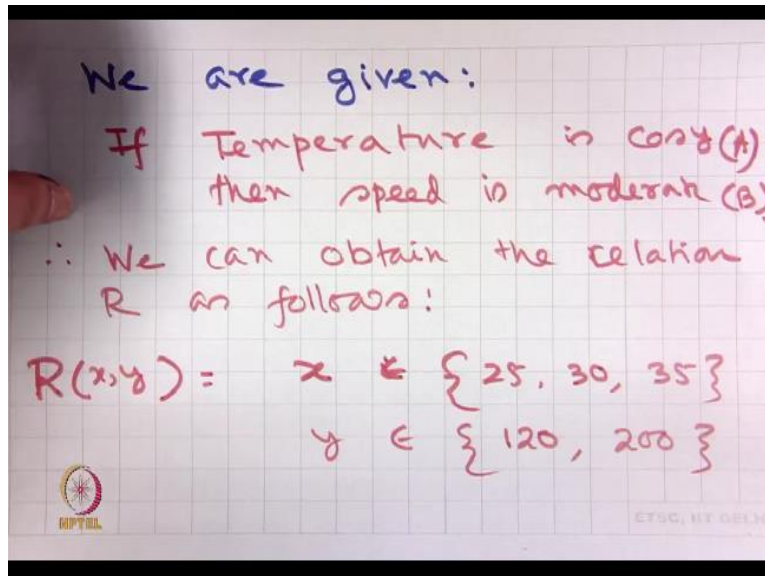 We are given:
If Temperature is cosy (A)
then speed is moderate (B)
∴ We can obtain the relation
R as follows:
R(x,y) = x ∈ {25, 30, 35}
y ∈ {120, 200}
NPTEL
ETSC, IIT DELH